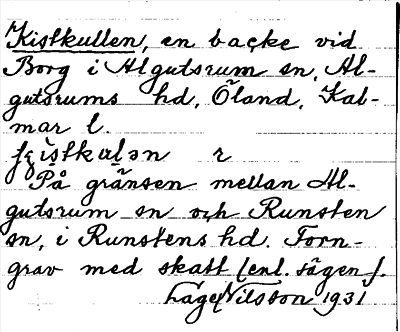 Kistkullen, en backe vid
Borg i Algutsrum sn, Al-
gutsrums hd, Öland, Kal-
mar l.
På gränsen mellan Al-
gutsrum sn och Runsten
sn, i Runstens hd. Forn-
grav med skatt (enl. sägen).
Lage Nilsson 1931